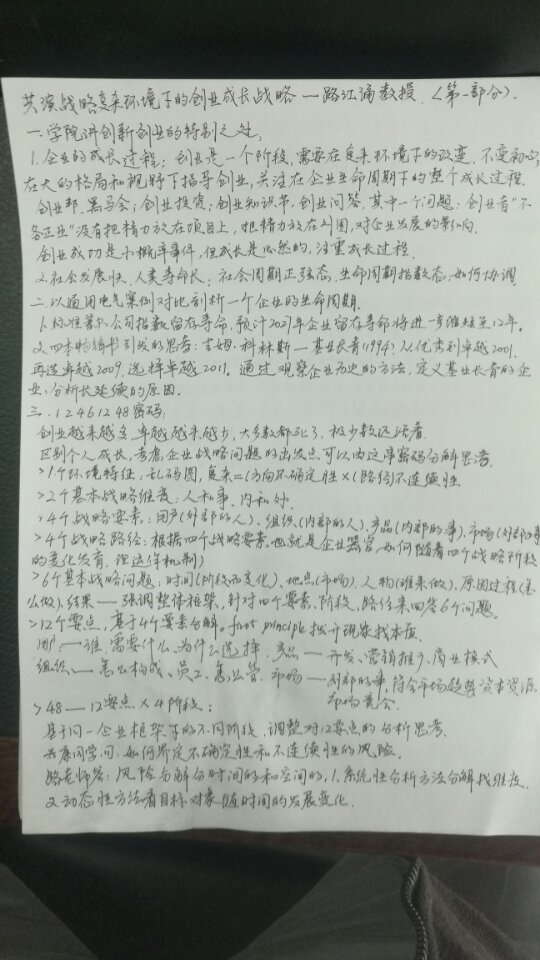 共演战略复杂环境下的创业成长战略—路江涌教授.(第一部分).
一.学院讲创新创业的特别之处,
1.企业的成长过程:创业是一个阶段,需要在复杂环境下的改变,不变初心,
在大的格局和视野下指导创业,关注在企业生命周期下的整个成长过程.
创业邦.黑马会;创业投资;创业知识书,创业问答,其中一个问题:创业者"不
务正业"没有把精力放在项目上,把精力放在,对企业发展的影响.
创业成功是小概率事件,但成长是必然的,注重成长过程.
2.社会发展快、人类寿命长;社会周期正弦态,生命周期指数态,如何协调
二.以通用电气案例对比剖析一个企业的生命周期.
1.标准普尔公司指数留存寿命,预计2027年企业留存寿命将进一步缩短至12年.
2.四本畅销书引发的思考:吉姆·科林斯—基业长青(1994),从优秀到卓越2001.
再造卓越2009,选择卓越2011。通过观察企业历史的方法,定义基业长青的企
业,分析长延续的原因.
三.1 2 4 6 12 48密码:
创业越来越多,卓越越来越少,大多数都死了,极少数还活着.
区别个人成长,考虑企业战略问题的出发点可以由这串密码分解思路.
>1个环境特征:乱码图,复杂=(方向)不确定性×(路径)不连续性
>2个基本战略维度:人和事、内和外.
>4个战略要素:用户(外部的人)、组织(内部的人),产品(内部的事),市场(外部的事)
>4个战略路径:根据四个战略要素,也就是企业器官,如何随着四个战略阶段
的变化发育.(运作机制)
>6个基本战略问题:时间(阶段的变化)、地点(市场)、人物(谁来做)、原因过程(怎
么做),结果——强调整体框架,针对四个要素,阶段,路径来回答6个问题。
>12个要点,基于4个要素分解。first principle 拨开现象找本质
用户——谁、需要什么、为什么选择.产品——开发、营销推广、商业模式
组织——怎么构成、员工、怎么管.市场——外部的事,符合市场趋势,资本资源
>48——12要点×4阶段:
基于同一企业框架下的不同阶段,调整对12要点的分析思考.
康同学问:如何界定不确定性和不连续性的风险
路老师答:风险分解分时间的和空间的,1.系统性分析方法分解找
2.动态性方法看目标对象随时间的发展变化.